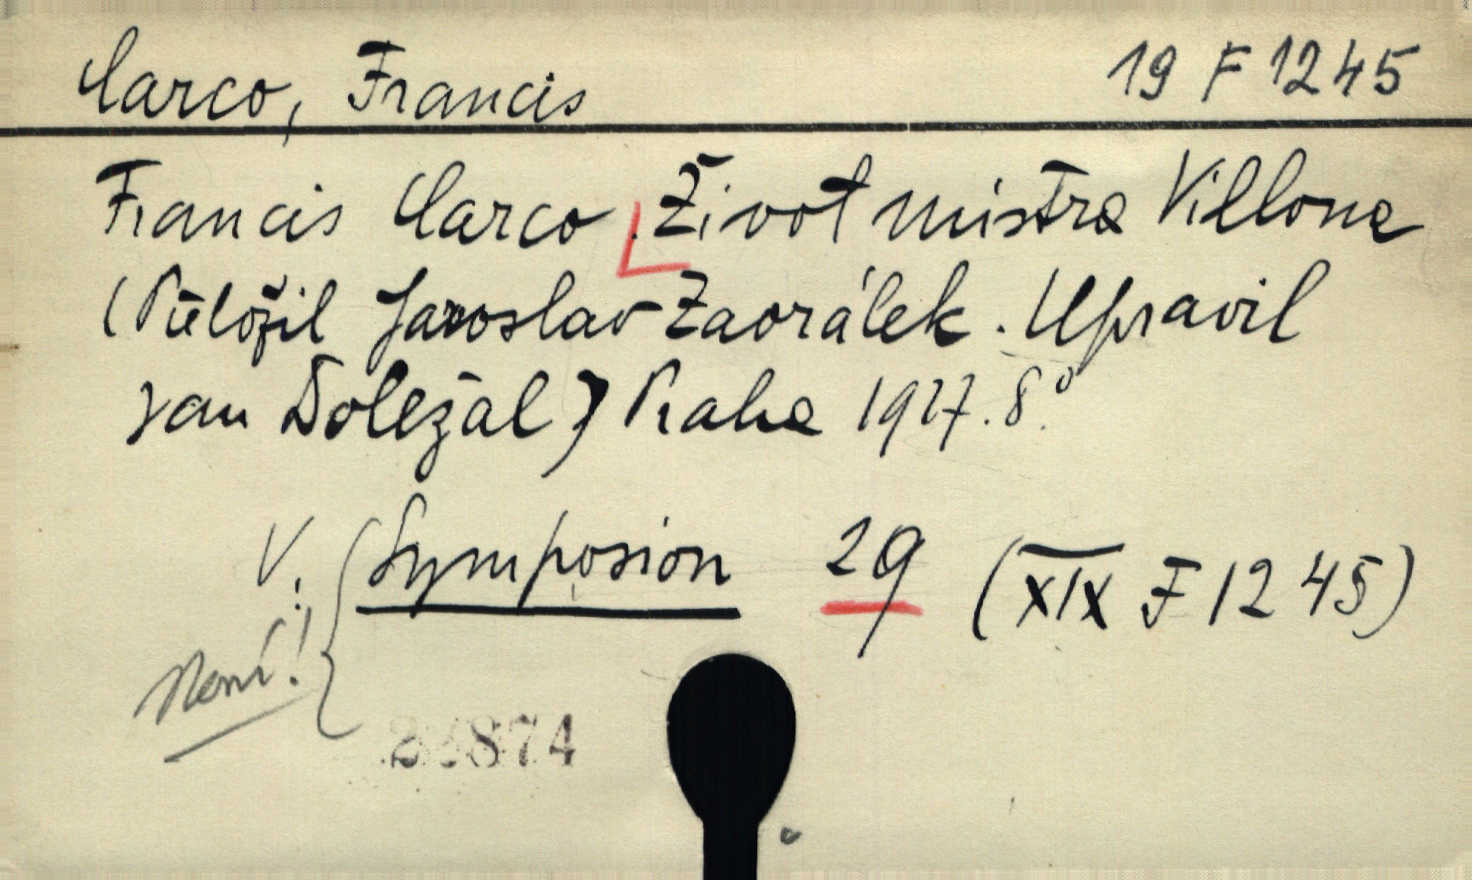 Carco, Francis 19 F 1245
Francis Carco. Život mistra Villona
(Přeložil Jaroslav Zaorálek. Upravil
Jan Doležal) Praha 1927. 8°.
V. Symposion 29 (XIX F 1245)
Není!